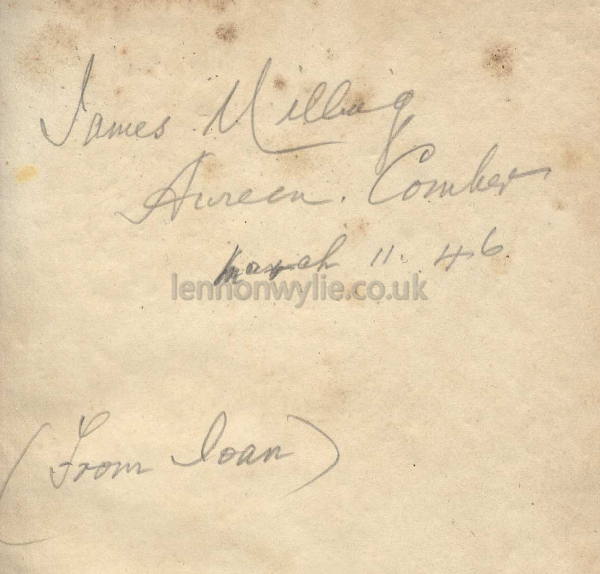 James Milling
Aureen. Comber
March 11. 46
lennonwylie.co.uk
(From Joan)